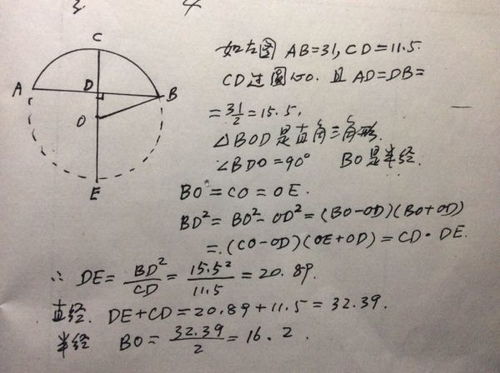 C
A
D
B
O
E
如左图 AB=31, CD=11.5.
CD过圆心O. 且 AD=DB=
=31/2=15.5,
△BOD是直角三角形.
∠BDO=90° BO是半径.
BO=CO=OE.
BD²=BO²-OD²=(BO-OD)(BO+OD)
=(CO-OD)(OE+OD)=CD·DE.
∴ DE=BD²/CD=15.5²/11.5=20.89.
直径. DE+CD=20.89+11.5=32.39.
半径 BO=32.39/2=16.2.